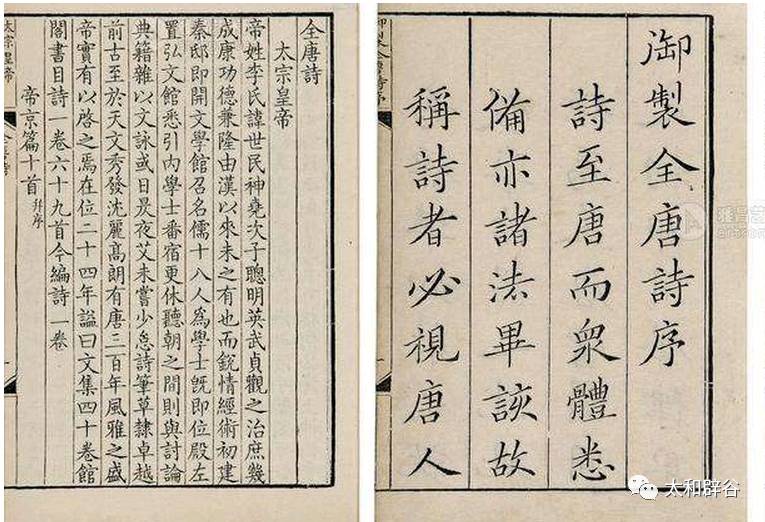 御製全唐詩序
詩至唐而衆體悉
備亦諸法畢該故
稱詩者必視唐人
全唐詩
太宗皇帝
帝姓李氏諱世民神堯次子聰明英武貞觀之治庶幾
成康功德兼隆由漢以來未之有也而銳情經術初建
秦邸即開文學館召名儒十八人爲學士既即位殿左
置弘文館悉引內學士番宿更休聽朝之間則與討論
典籍雜以文詠或日昃夜艾未嘗少怠詩筆草隸卓越
前古至於天文秀發沈麗高朗有唐三百年風雅之盛
帝實有以啓之焉在位二十四年諡曰文集四十卷館
閣書目詩一卷六十九首今編詩一卷
帝京篇十首并序
太宗皇帝
雅昌艺
太和辟谷